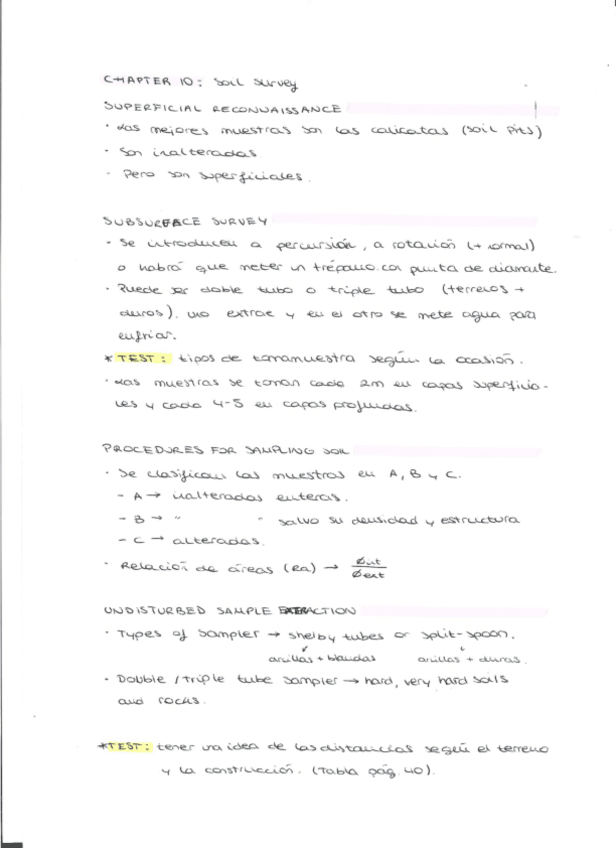 CHAPTER 10: Soil Survey
SUPERFICIAL RECONNAISSANCE
· Las mejores muestras son las calicatas (soil pits)
· Son inalteradas.
· Pero son superficiales.
SUBSURFACE SURVEY
· Se introducen a percusión, a rotación (+ normal)
o habrá que meter un trépano con punta de diamante.
· Puede ser doble tubo o triple tubo (terrenos +
duros). Uno extrae y en el otro se mete agua para
enfriar.
* TEST: tipos de tomamuestra según la ocasión.
· Las muestras se toman cada 2m en capas superficia-
les y cada 4-5 en capas profundas.
PROCEDURES FOR SAMPLING SOIL
· Se clasifican las muestras en A, B y C.
- A → inalteradas enteras.
- B → " " salvo su densidad y estructura
- C → alteradas.
· Relación de áreas (Ra) → Øint
Øext
UNDISTURBED SAMPLE EXTRACTION
· Types of sampler → shelby tubes or split-spoon.
arcillas + blandas arcillas + duras.
· Double / triple tube sampler → hard, very hard soils
and rocks.
*TEST: tener una idea de las distancias según el terreno
y la construcción. (Tabla pág. 40).